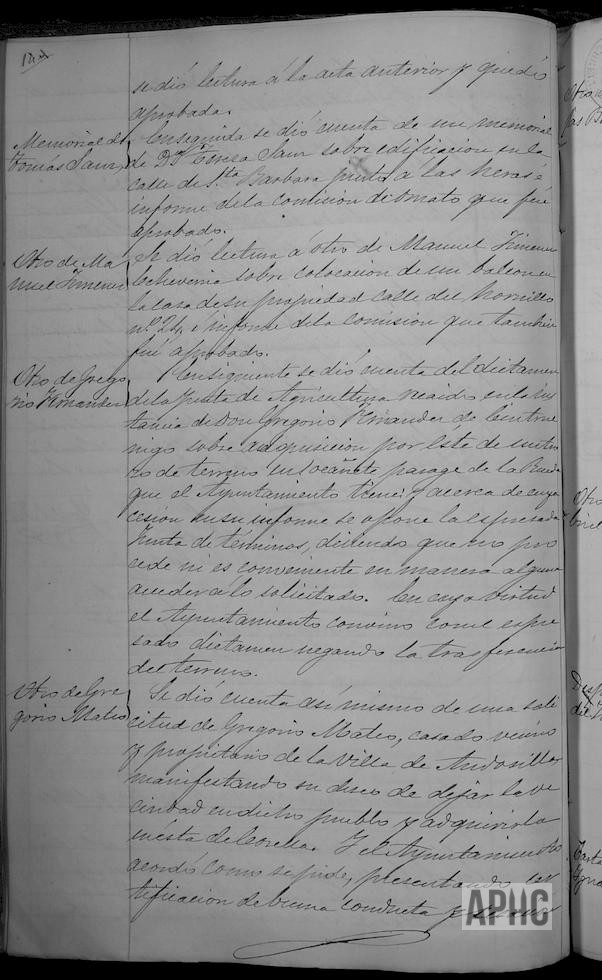 se dió lectura á la acta anterior y quedó
aprobada.
Memorial de
Tomás Sanz
Enseguida se dió cuenta de un memorial
de D. Sanz sobre edificacion en la
calle de Sta Barbara junto á las heras é
informe de la comision de ornato que fué
aprobado.
Otro de Ma
nuel Jimenez
Se dió lectura á otro de Manuel Jimenez
Echeverria sobre colocacion de un balcon en
la casa de su propiedad calle del Hornillo
nº 24, é informe de la comision que tambien
fué aprobado.
Otro de Grego
rio Fernandez
Consiguiente se dió cuenta del dictamen
de la Junta de Agricultura recaido en la ins
tancia de Don Gregorio Fernandez de Cintrue
nigo sobre adquisicion por Este de
de terreno en parage de la
que el Ayuntamiento tiene y acerca de cuya
cesion en su informe se opone la espresada
Junta de términos, diciendo que no pro
cede ni es conveniente en manera alguna
acceder á lo solicitado. En cuya virtud
el Ayuntamiento convino con el espre
sado dictamen negando la trasferencia
del terreno.
Otro de Gre
gorio Mateo
Se dió cuenta asi mismo de una soli
citud de Gregorio Mateo, casado vecino
y propietario de la Villa de Andosilla
manifestando su deseo de dejar la ve
cindad en dicho pueblo y adquirir la
en esta de Corella. Y el Ayuntamiento
acordó como se pide, presentando cer
tificacion de buena conducta y
APHC